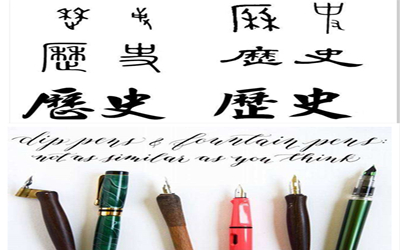 歷史 歷史
歷史 歷史
dip pens & fountain pens:
not as similar as you think